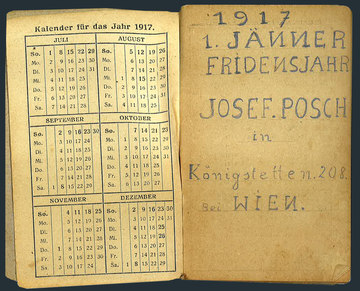 Kalender für das Jahr 1917.
JULI AUGUST
So. 1 8 15 22 29 5 12 19 26
Mo. 2 9 16 23 30 6 13 20 27
Di. 3 10 17 24 31 7 14 21 28
Mi. 4 11 18 25 1 8 15 22 29
Do. 5 12 19 26 2 9 16 23 30
Fr. 6 13 20 27 3 10 17 24 31
Sa. 7 14 21 28 4 11 18 25
SEPTEMBER OKTOBER
So. 2 9 16 23 30 7 14 21 28
Mo. 3 10 17 24 1 8 15 22 29
Di. 4 11 18 25 2 9 16 23 30
Mi. 5 12 19 26 3 10 17 24 31
Do. 6 13 20 27 4 11 18 25
Fr. 7 14 21 28 5 12 19 26
Sa. 1 8 15 22 29 6 13 20 27
NOVEMBER DEZEMBER
So. 4 11 18 25 2 9 16 23 30
Mo. 5 12 19 26 3 10 17 24 31
Di. 6 13 20 27 4 11 18 25
Mi. 7 14 21 28 5 12 19 26
Do. 1 8 15 22 29 6 13 20 27
Fr. 2 9 16 23 30 7 14 21 28
Sa. 3 10 17 24 1 8 15 22 29
1917
1. JÄNNER
FRIDENSJAHR
JOSEF. POSCH
in
Königstetten. 208.
Bei WIEN.